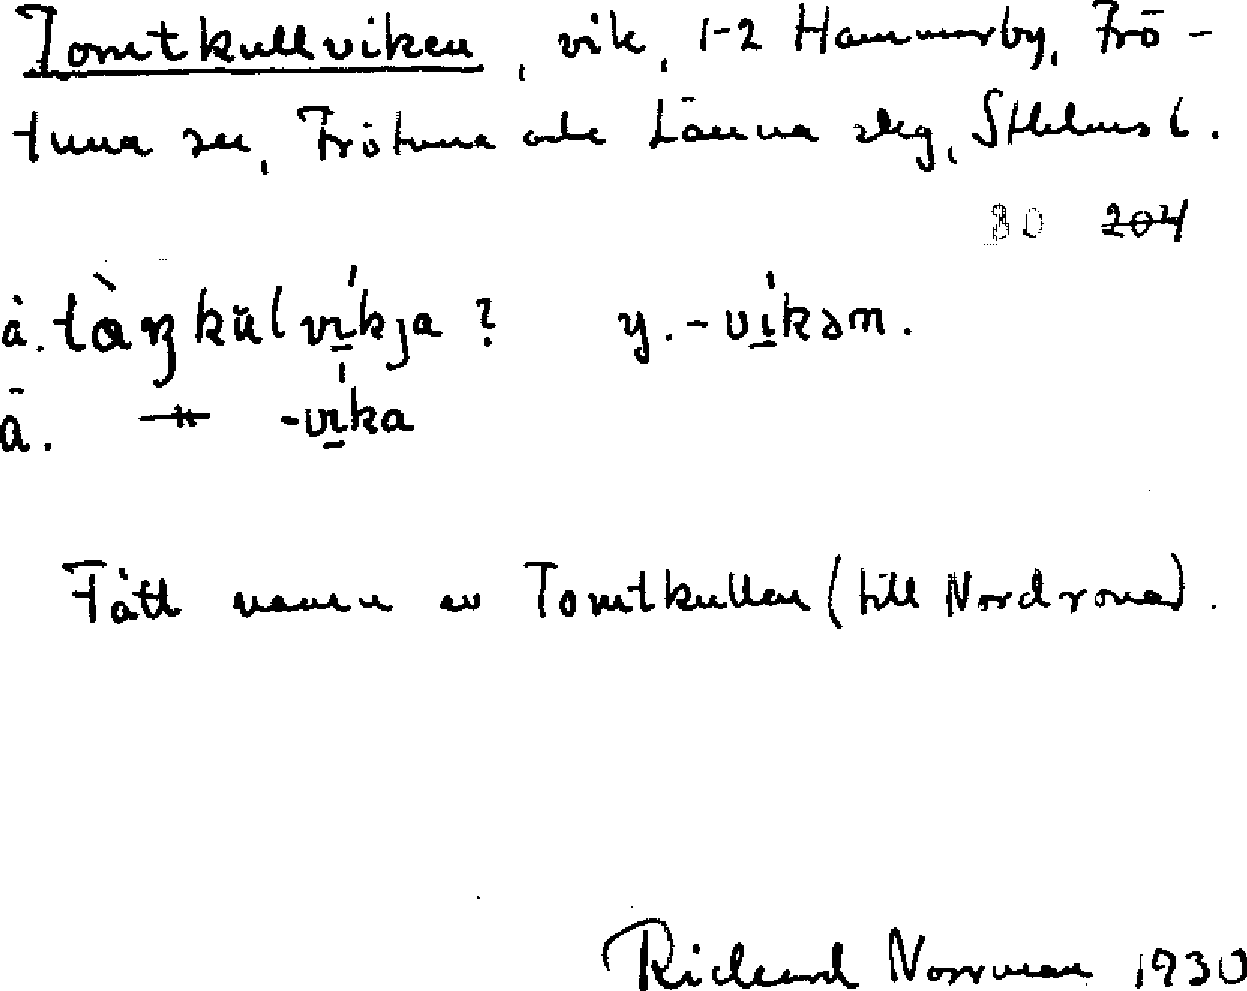 Tomtkullviken, vik, 1-2 Hammarby, Frö-
tuna sn, Frötuna och Länna slg, Sthlms l.
30 204
å. tàŋkŭlvíkja? y. -víkəm.
ä. -〃- -víka
Fått namn av Tomtkullen (till Nordrona).
Richard Norrman 1930